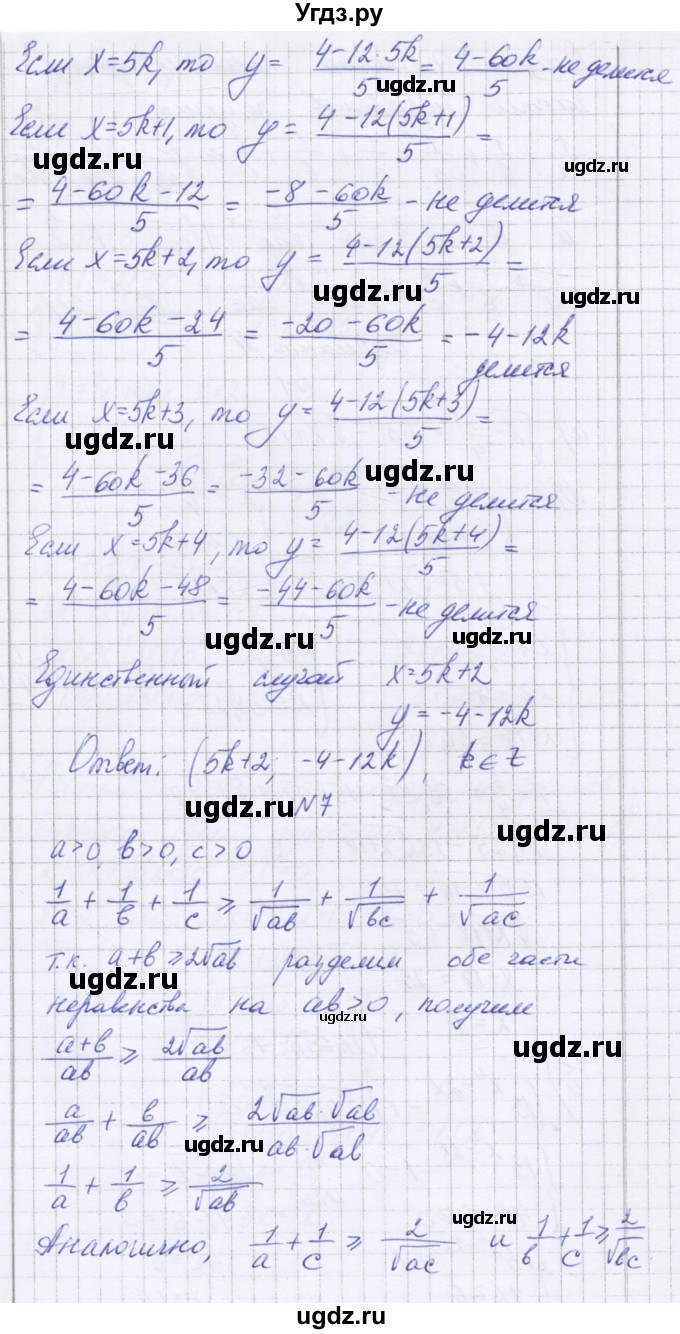 Угдз.ру
Если x=5k, то y = (4-12·5k)/5 = (4-60k)/5 - не делится
ugdz.ru
Если x=5k+1, то y = (4-12(5k+1))/5 =
ugdz.ru ugdz.ru
= (4-60k-12)/5 = (-8-60k)/5 - не делится
Если x=5k+2, то y = (4-12(5k+2))/5 =
ugdz.ru ugdz.ru
= (4-60k-24)/5 = (-20-60k)/5 = -4-12k
делится
Если x=5k+3, то y = (4-12(5k+3))/5 =
ugdz.ru
= (4-60k-36)/5 = (-32-60k)/5 - не делится
ugdz.ru
Если x=5k+4, то y = (4-12(5k+4))/5 =
= (4-60k-48)/5 = (-44-60k)/5 - не делится
ugdz.ru ugdz.ru
Единственный случай x=5k+2
y = -4-12k
Ответ: (5k+2; -4-12k), k∈Z
ugdz.ru N7 ugdz.ru
a>0, b>0, c>0
1/a + 1/b + 1/c ≥ 1/√ab + 1/√bc + 1/√ac
т.к. a+b ≥ 2√ab разделим обе части
ugdz.ru
неравенства на ab>0, получим
ugdz.ru
(a+b)/ab ≥ 2√ab/ab
ugdz.ru
a/ab + b/ab ≥ (2√ab·√ab)/(ab·√ab)
ugdz.ru
1/a + 1/b ≥ 2/√ab
ugdz.ru
Аналогично, 1/a + 1/c ≥ 2/√ac и 1/b + 1/c ≥ 2/√bc
ugdz.ru